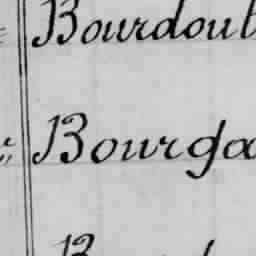 Bourdout
Bourga